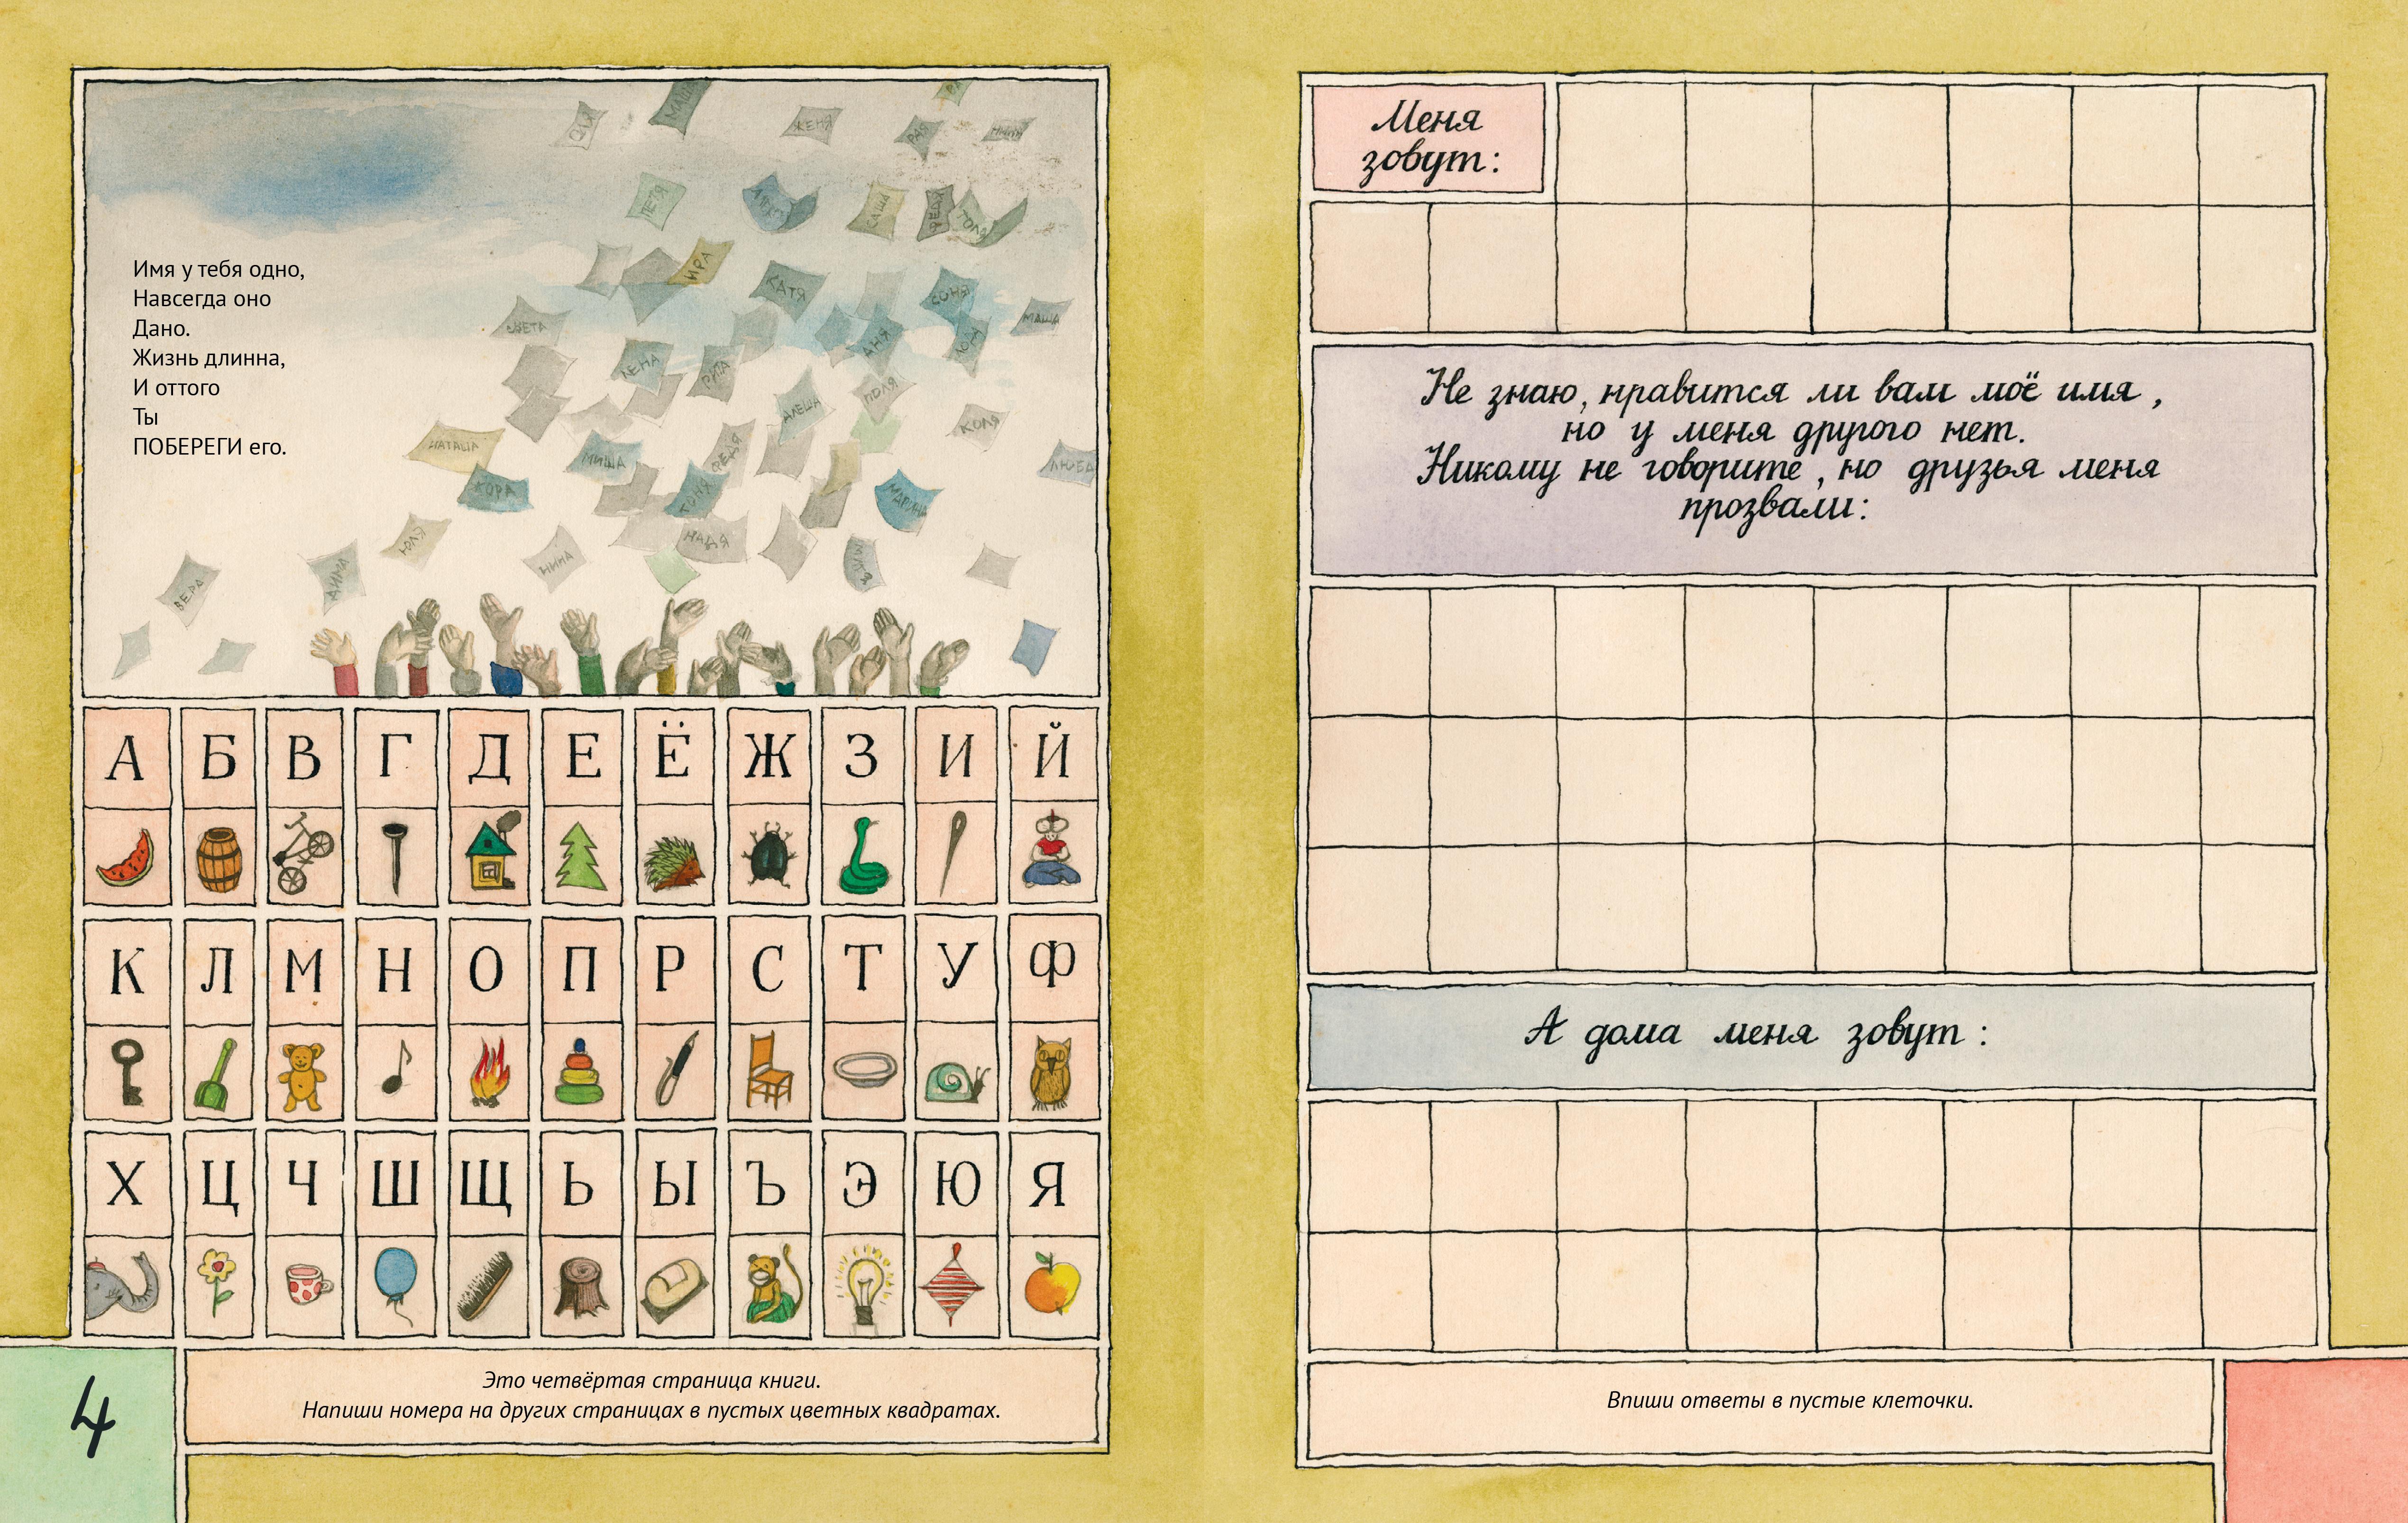 Имя у тебя одно,
Навсегда оно
Дано.
Жизнь длинна,
И оттого
Ты
ПОБЕРЕГИ его.
МАША
ЖЕНЯ
РАЯ
ПЕТЯ
САША
ФЕДЯ
ТОЛЯ
ИРА
КАТЯ
СОНЯ
СВЕТА
МАША
АНЯ
ЛЕНА
РИТА
АЛЕША
ПОЛЯ
КОЛЯ
НАТАША
МИША
ФЕДЯ
ЛЮБА
ЖОРА
ТОНЯ
МАРИНА
ЮЛЯ
НАДЯ
НИНА
ДИМА
ВЕРА
А Б В Г Д Е Ё Ж З И Й
К Л М Н О П Р С Т У Ф
Х Ц Ч Ш Щ Ь Ы Ъ Э Ю Я
4
Это четвёртая страница книги.
Напиши номера на других страницах в пустых цветных квадратах.
Меня
зовут:
Не знаю, нравится ли вам моё имя,
но у меня другого нет.
Никому не говорите, но друзья меня
прозвали:
А дома меня зовут:
Впиши ответы в пустые клеточки.